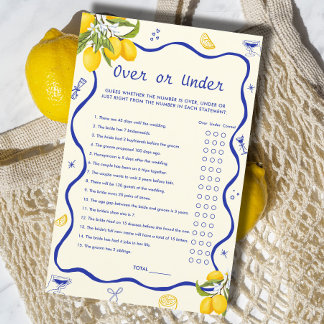 Over or Under
GUESS WHETHER THE NUMBER IS OVER, UNDER OR
JUST RIGHT FROM THE NUMBER IN EACH STATEMENT.
Over Under Correct
1. There are 45 days until the wedding.
2. The bride has 7 bridesmaids.
3. The bride had 2 boyfriends before the groom.
4. The groom proposed 100 days ago.
5. Honeymoon is 5 days after the wedding.
6. The couple has been on 6 trips together.
7. The couple wants to wait 2 years before kids.
8. There will be 120 guests at the wedding.
9. The bride owns 20 pairs of shoes.
10. The age gap between the bride and groom is 3 years.
11. The bride's shoe size is 7.
12. The bride tried on 15 dresses before she found the one.
13. The bride's full new name will have a total of 15 letters.
14. The bride has had 4 jobs in her life.
15. The groom has 3 siblings.
TOTAL